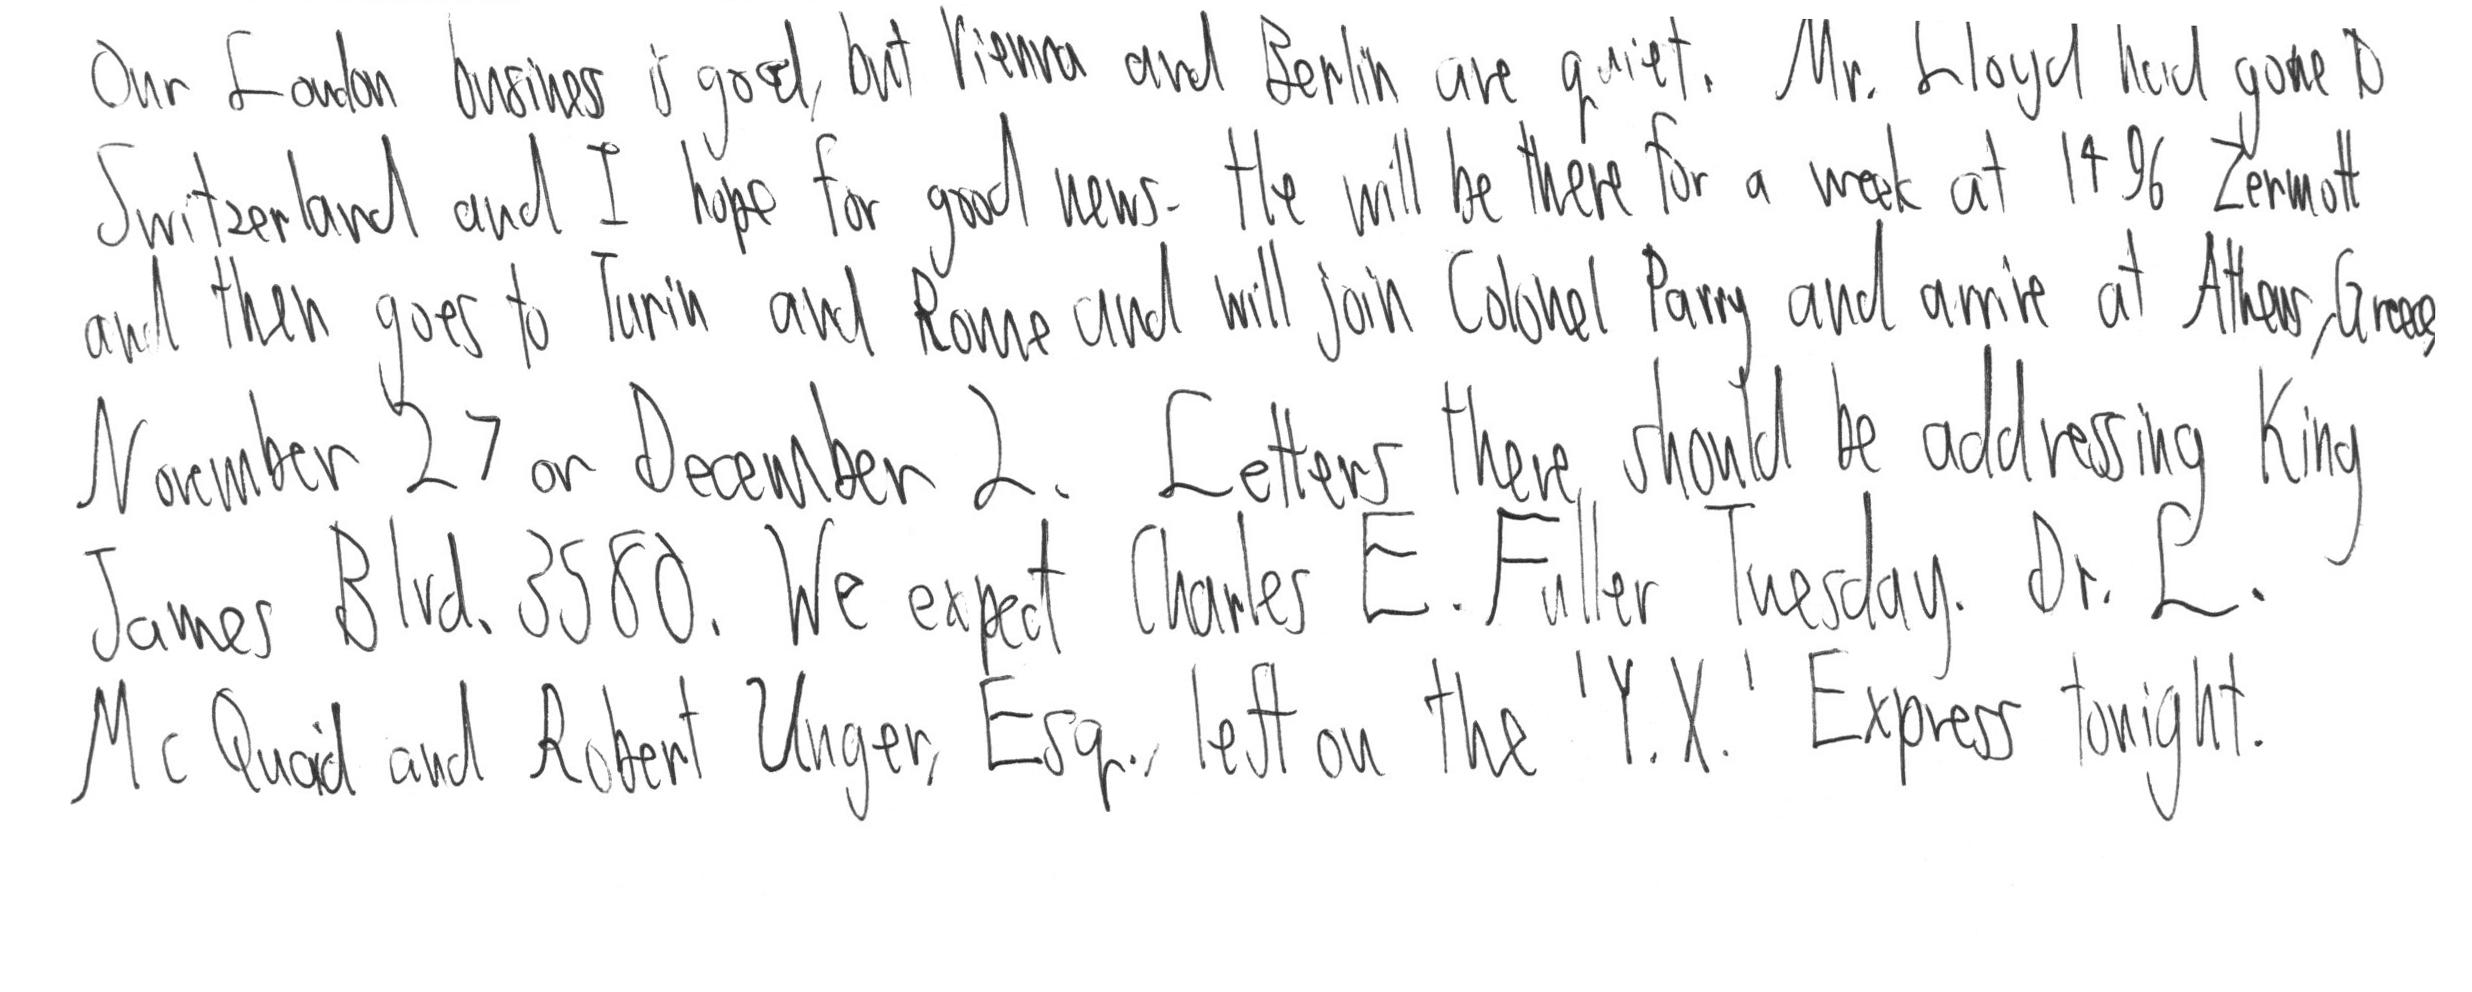 Our London business is good, but Vienna and Berlin are quiet. Mr. Lloyd had gone to
Switzerland and I hope for good news. He will be there for a week at 1496 Zermott
and then goes to Turin and Rome and will join Colonel Parry and arrive at Athens, Greece,
November 27 or December 2. Letters there should be addressing King
James Blvd. 3580. We expect Charles E. Fuller Tuesday. Dr. L.
Mc Quaid and Robert Unger, Esq., left on the 'Y.X.' Express tonight.